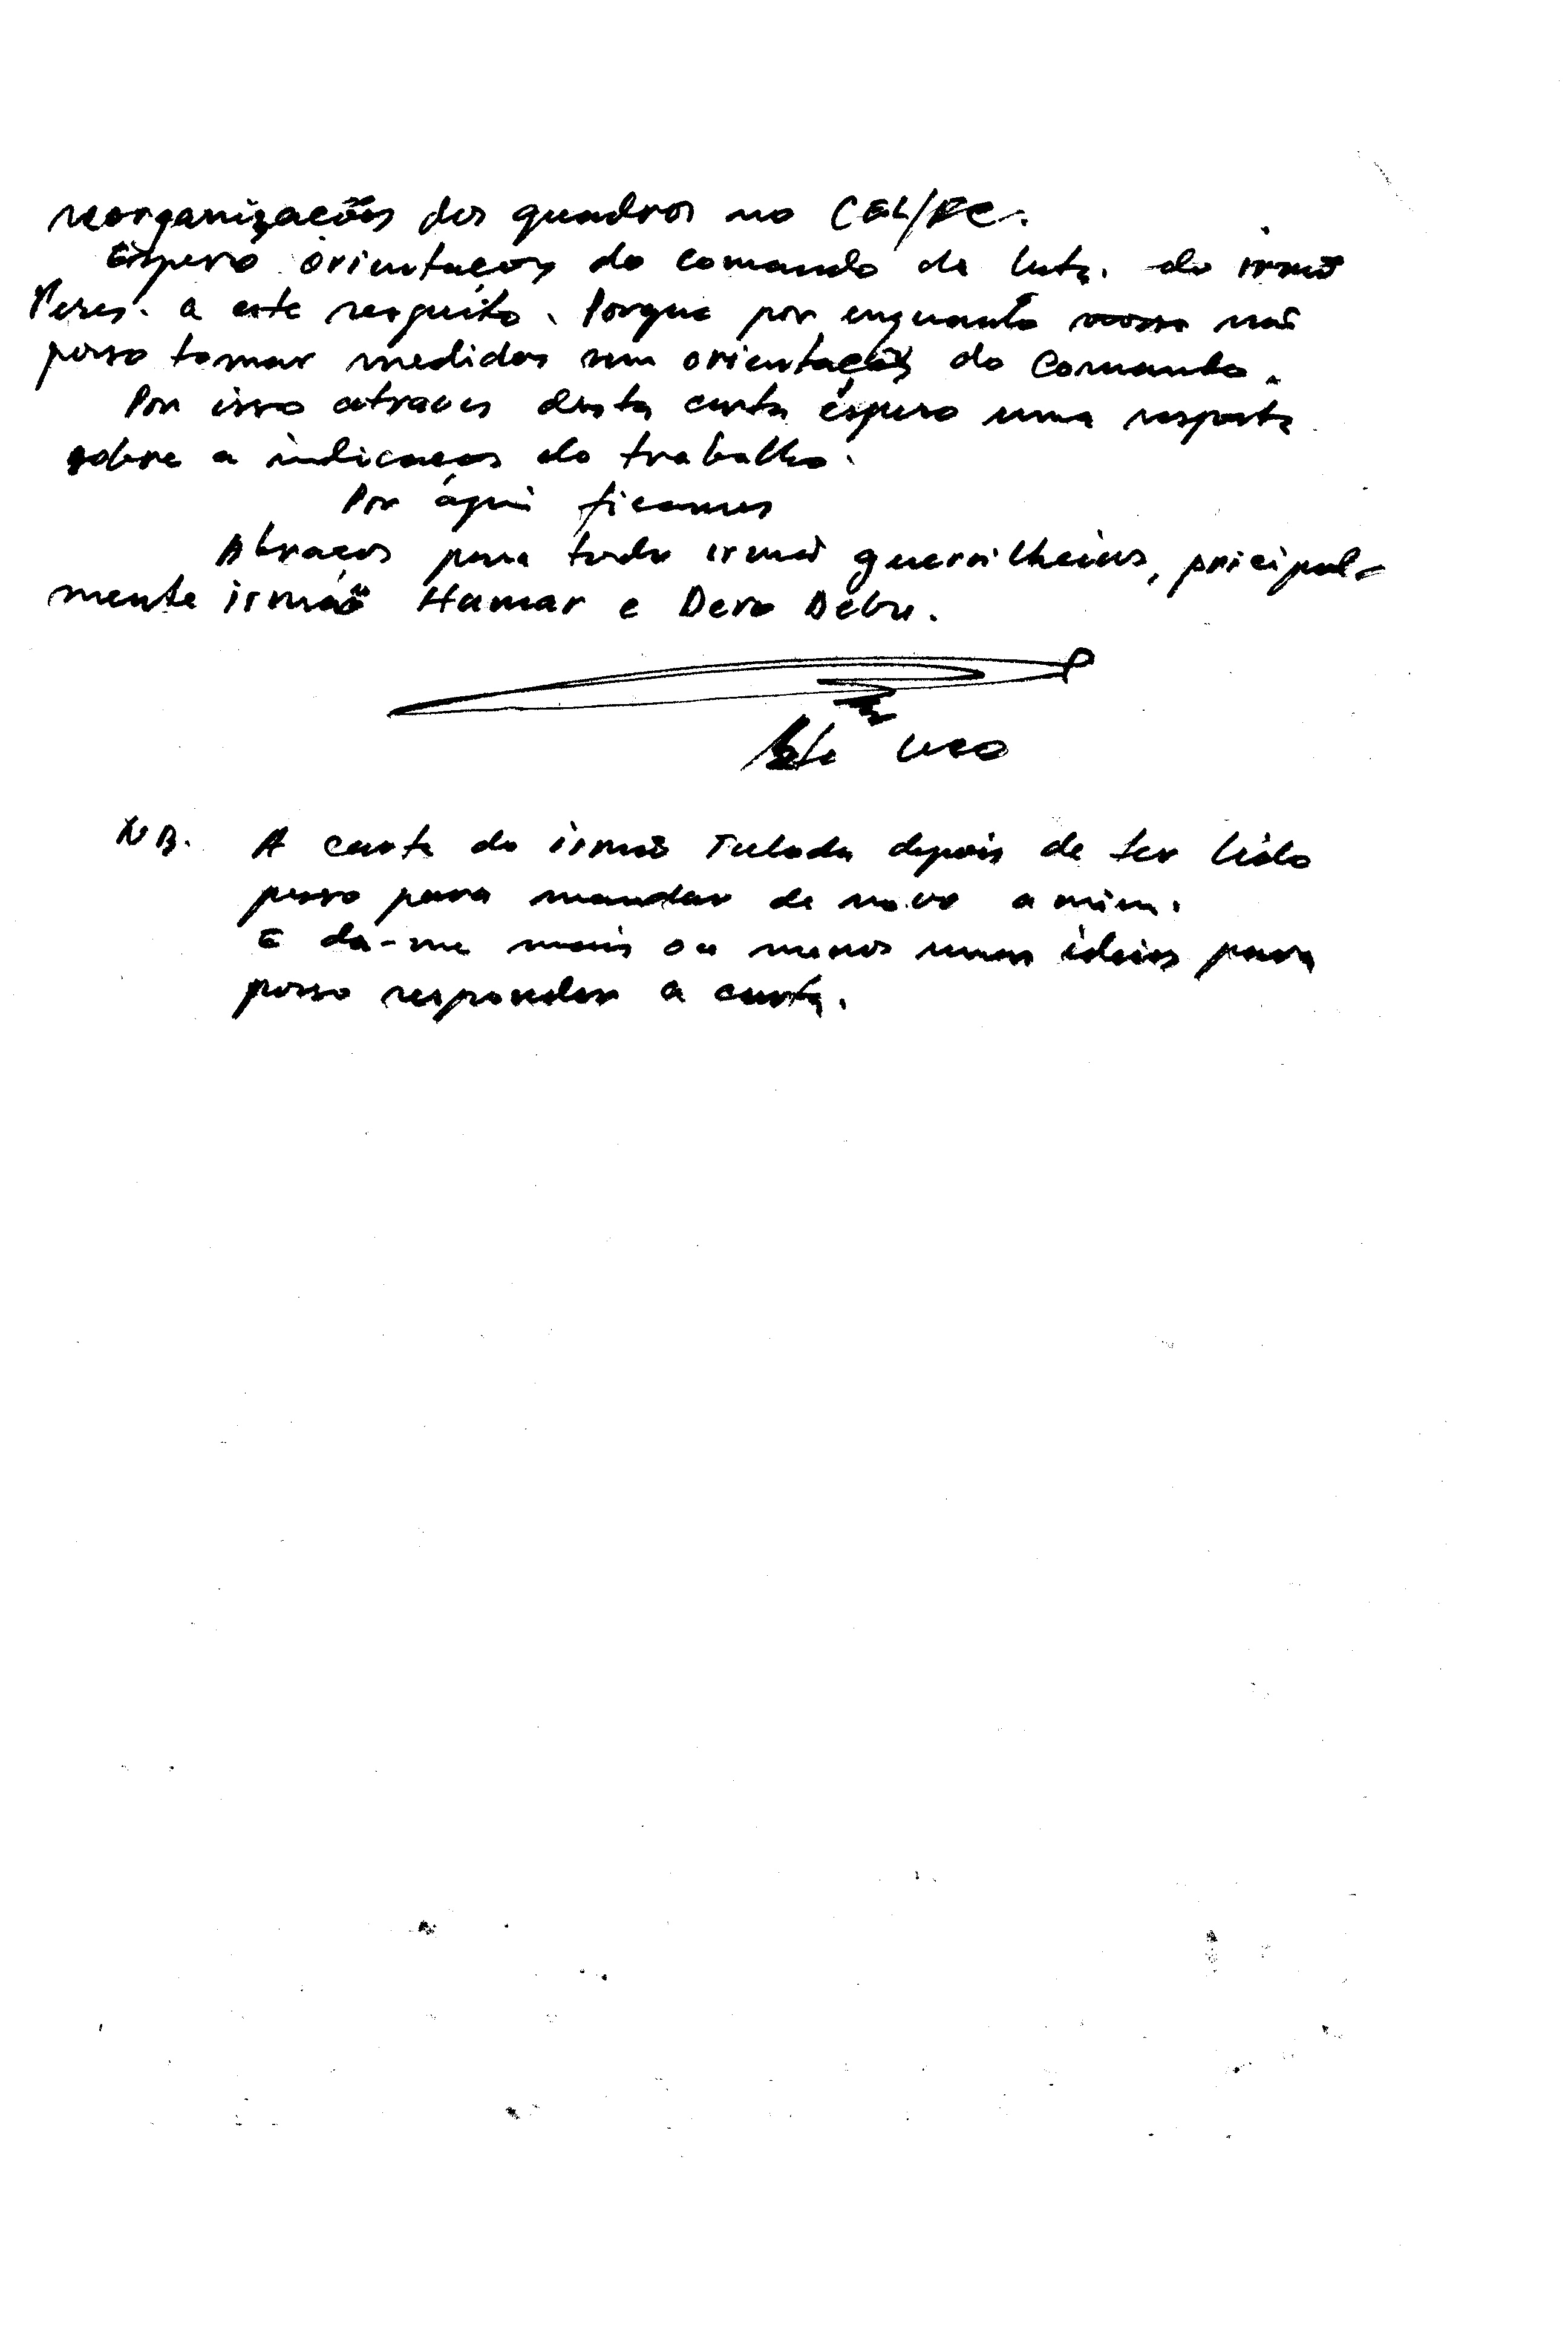 reorganizações dos quadros no CEL/FC.
Espero orientações do comando da luta. do irmão
Peres. a este respeito. Porque por enquanto não
posso tomar medidas sem orientações do Comando.
Por isso atraves desta carta éspero uma resposta
sobre a indicaçoes do trabalho.
Por áqui ficamos
Abraços para todo irmão guerrilheiros, pricipal-
mente irmão Hamar e Dero Debu.
NB. A carta do irmão Tulada depois de ter lido
peço para mandar de novo a mim.
E da-me mais ou menos umas ideias para
posso responder a carta.